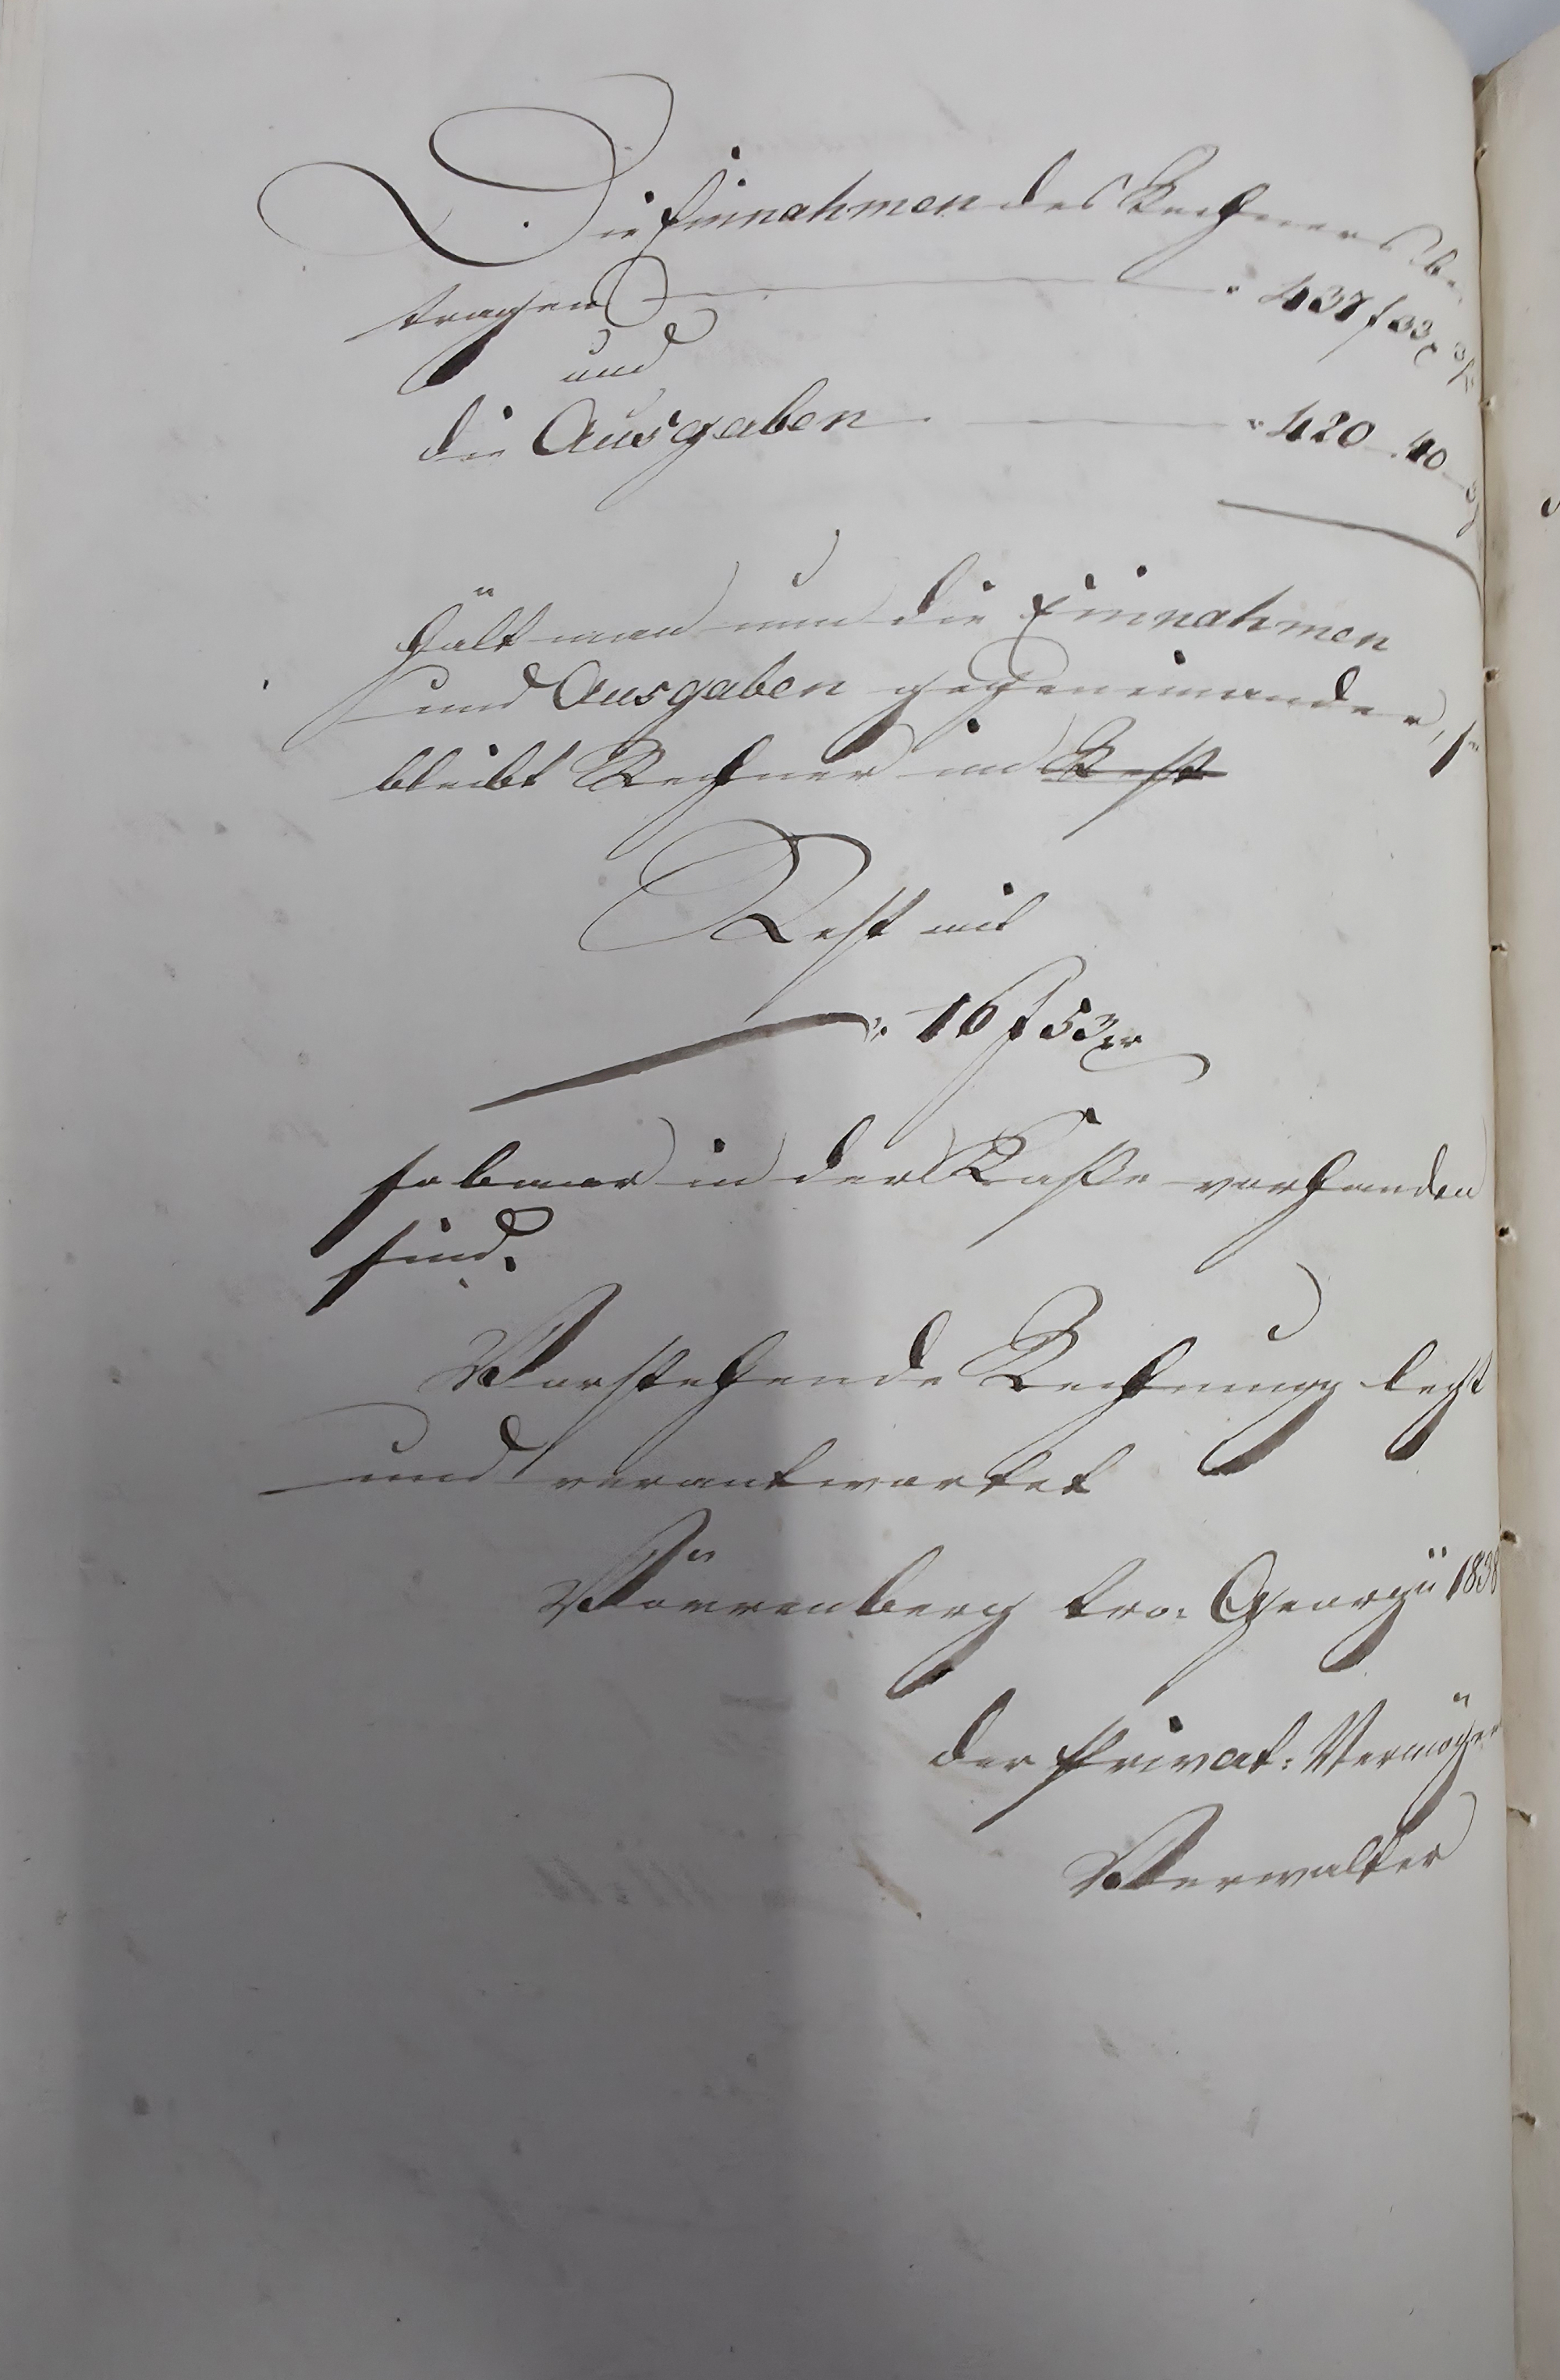 Die Einnahmen des Rechners be
tragen " 437 f 33
und
die Ausgaben " 420 . 40
Hält man nun die Einnahmen
und Ausgaben gegeneinander, so
bleibt Rechner im Rest
Rest mit
" 16 f 53 xr
so baar in der Kasse vorhanden
sind.
Vorstehende Rechnung legt
und verantwortet
Vörrenberg tro. Georgii 1838
Der Privat-Vermögen
Verwalter